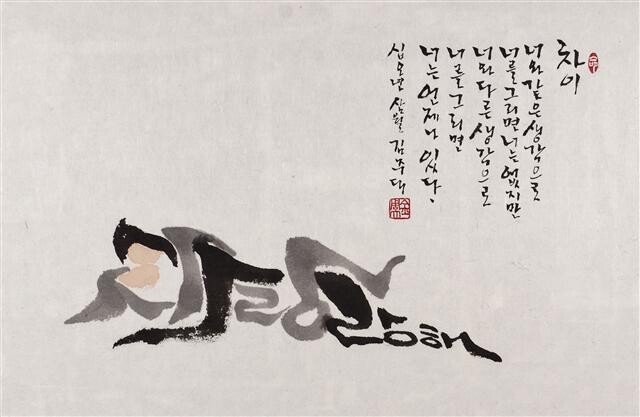 차이
너와 같은 생각으로
너를 그리면 너는 없지만
너와 다른 생각으로
너를 그리면
너는 언제나 있다.
십오년 삼월 김주대
사랑해